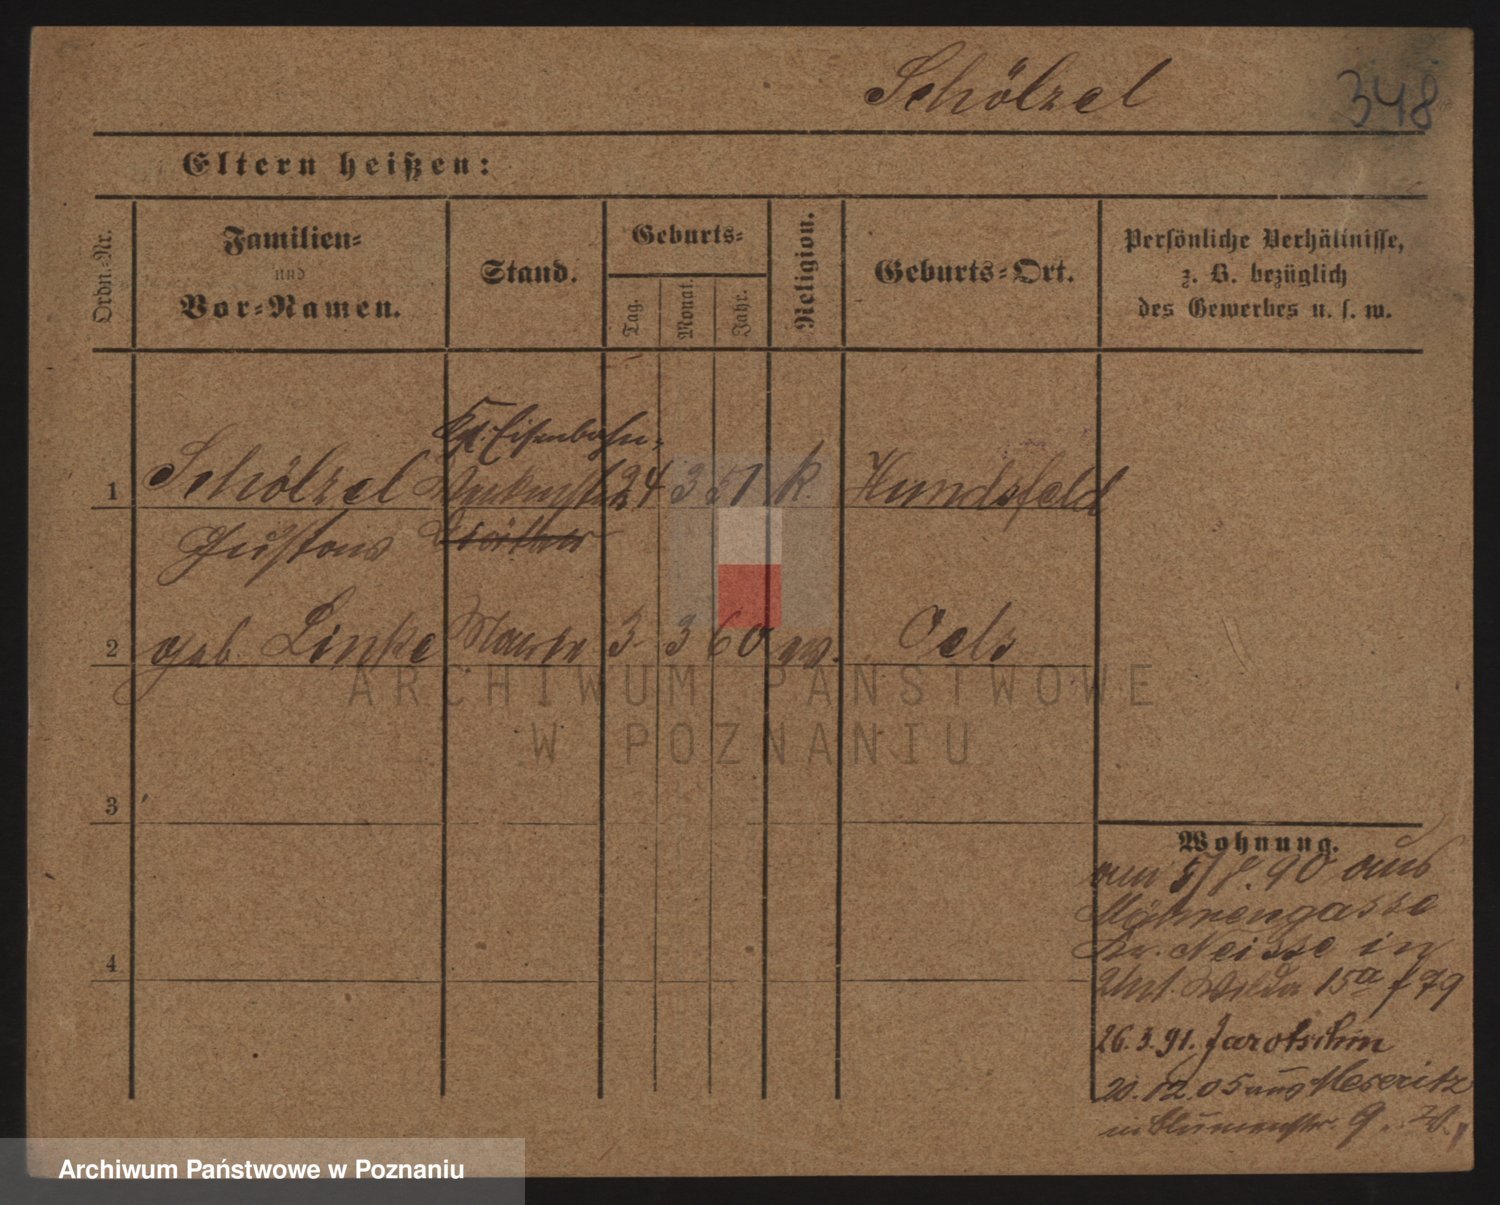 Schölzel
348
Eltern heißen:
Ordn.-Nr.
Familien-
und
Vor-Namen.
Stand.
Geburts-
Tag.
Monat.
Jahr.
Religion.
Geburts-Ort.
Persönliche Verhältnisse,
z. B. bezüglich
des Gewerbes u. s. w.
Kgl. Eisenbahn-
1 Schölzel 24 3 51 k. Hundsfeld
Gustav Diätar
2 geb. Linke 3 3 60 ev. Oels
3
4
Wohnung.
am 90 aus
Kr. Neisse in
Unt. Wilda 15a f 79
26.3.91. Jarotschin
20.12.05 aus Meseritz
in Blumenstr. 9.
ARCHIWUM PAŃSTWOWE
W POZNANIU
Archiwum Państwowe w Poznaniu